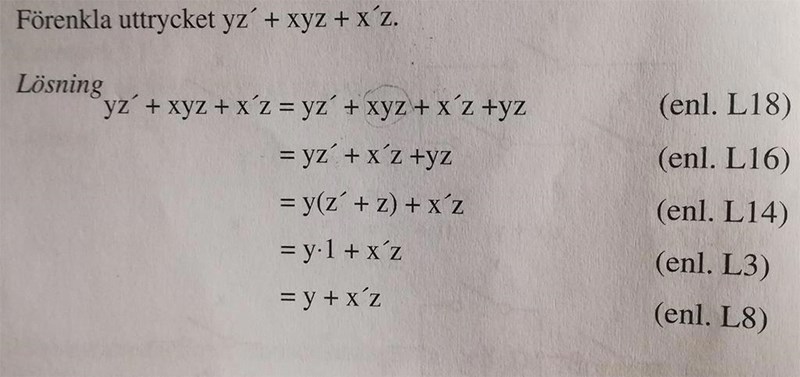 Förenkla uttrycket yz´ + xyz + x´z.
Lösning
yz´ + xyz + x´z = yz´ + xyz + x´z +yz (enl. L18)
= yz´ + x´z +yz (enl. L16)
= y(z´ + z) + x´z (enl. L14)
= y·1 + x´z (enl. L3)
= y + x´z (enl. L8)